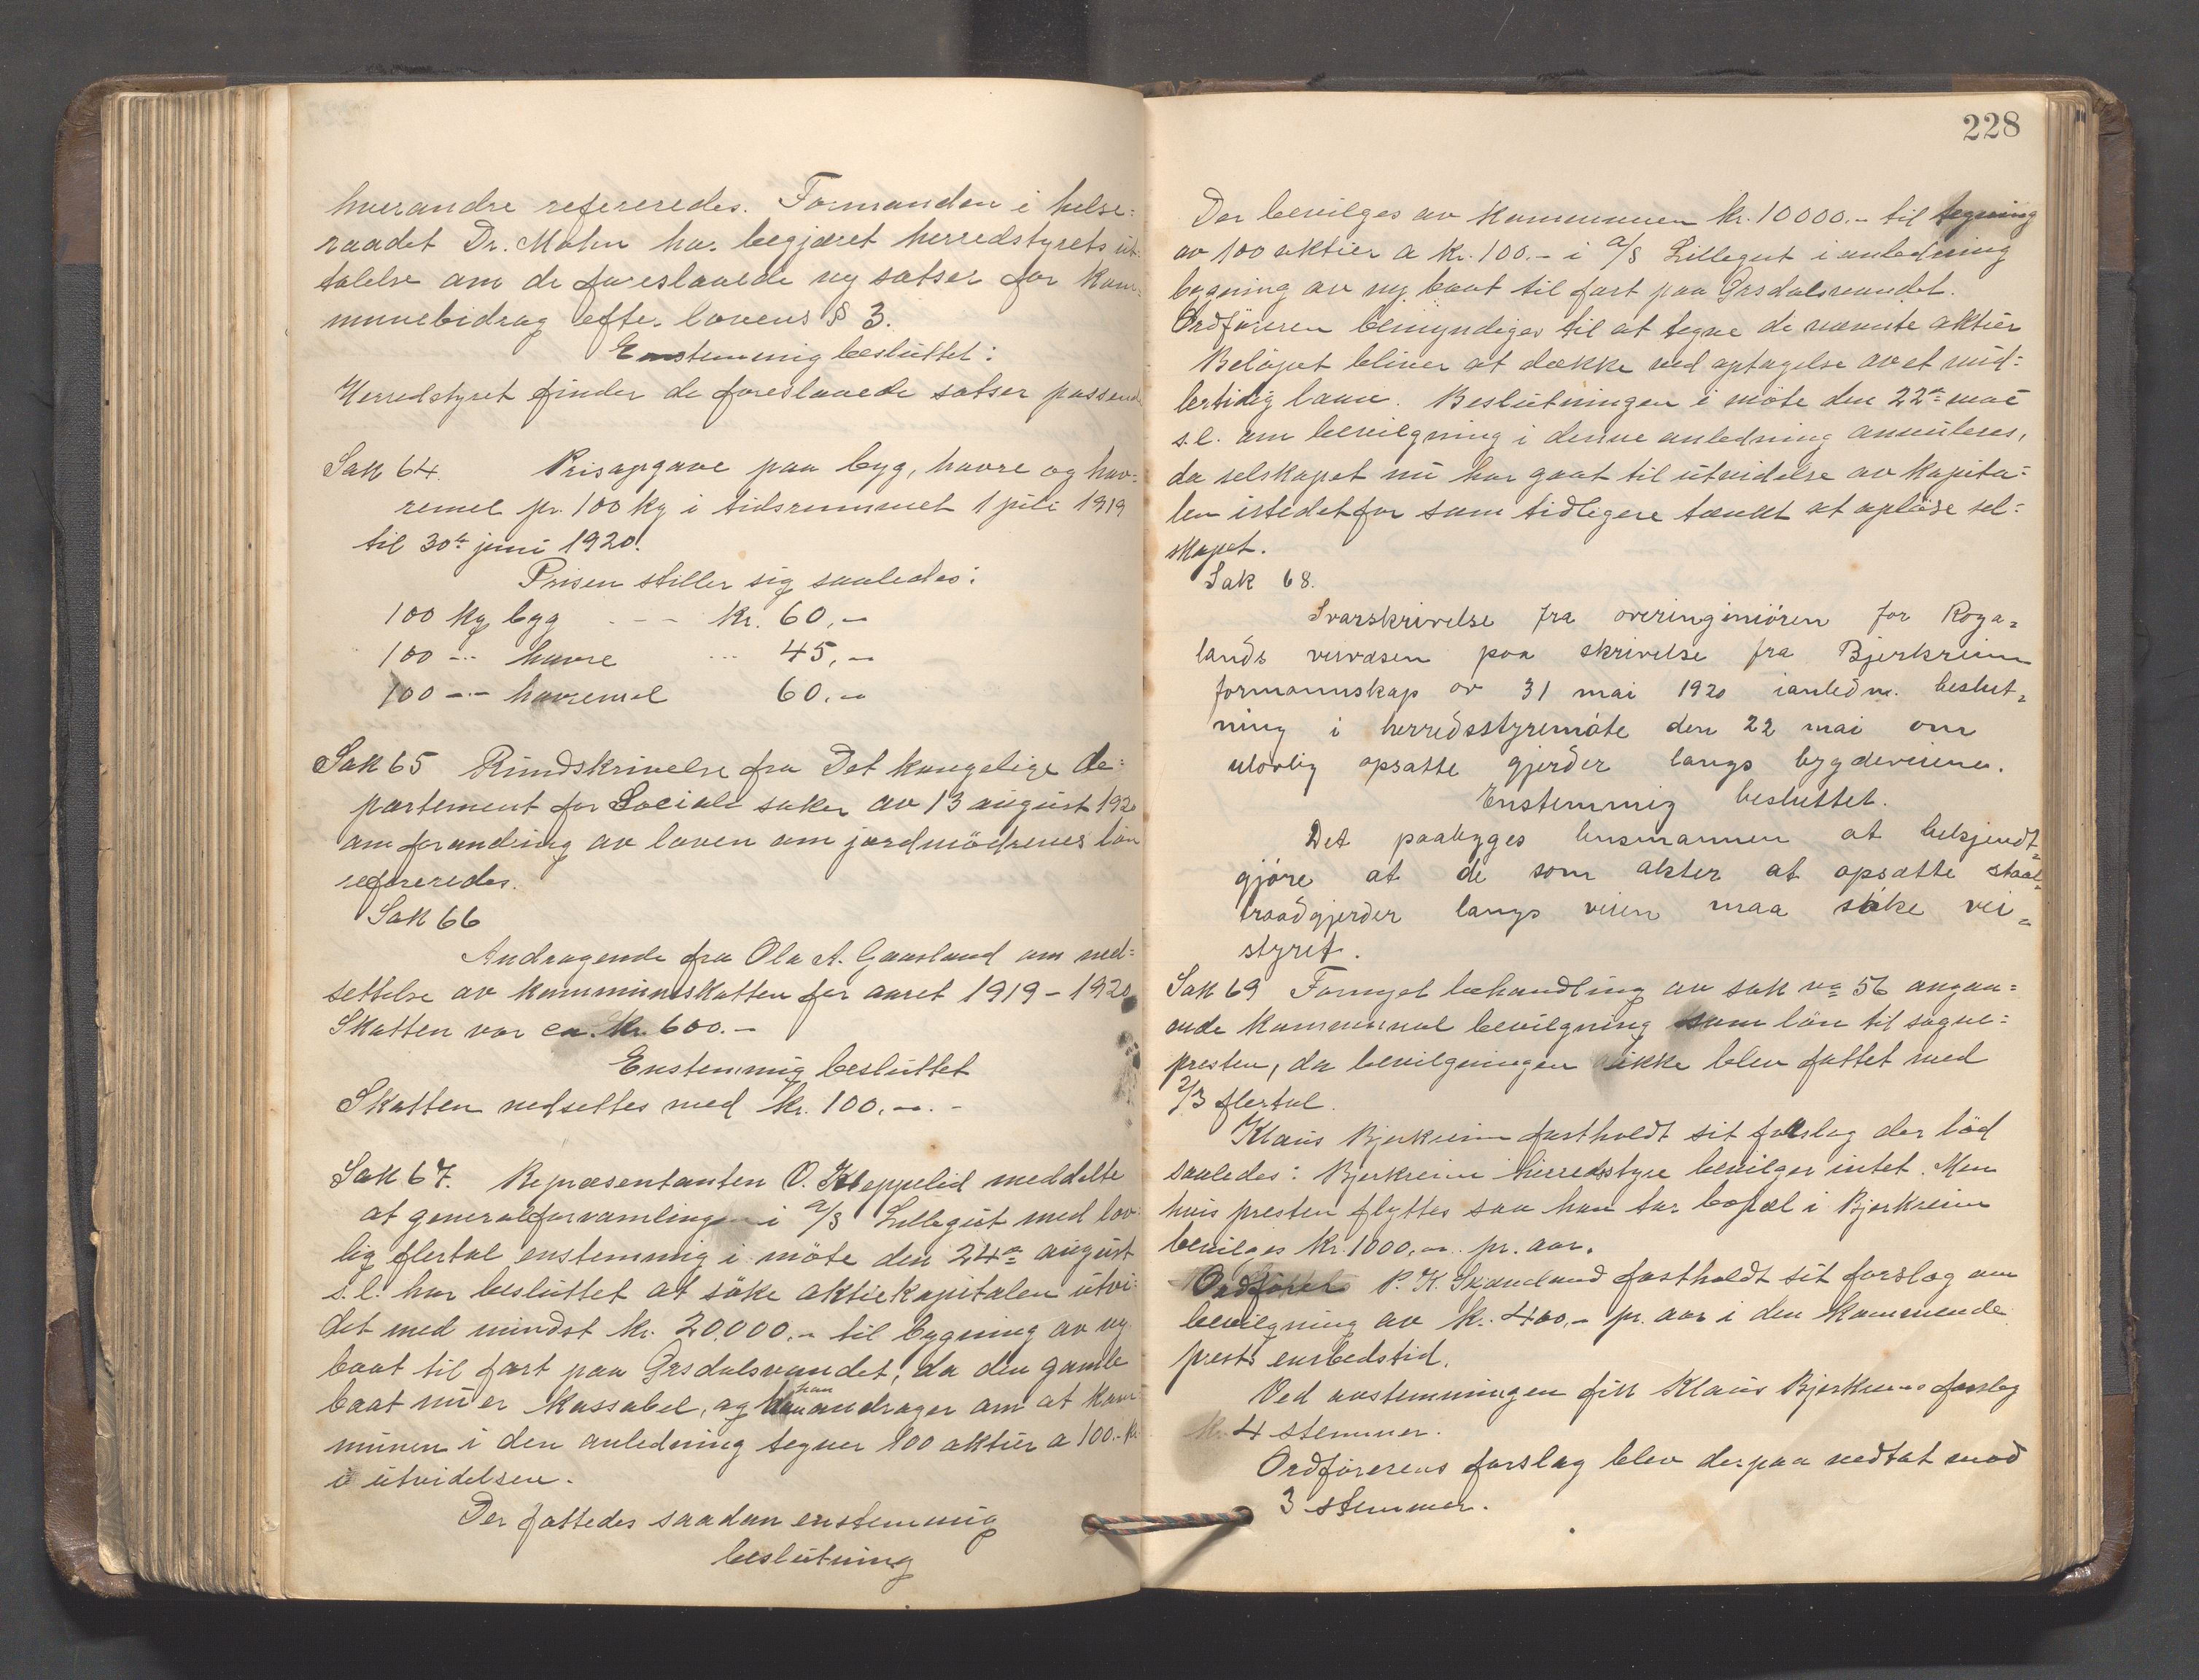 hverandre refereredes. Formanden i helse=
raadet Dr. Mohn har begjæret herredstyrets ut=
talelse om de foreslaaede ny satser for kom=
munebidrag efter lovens § 3.
Enstemmig besluttet:
Herredstyret finder de foreslaaede satser passende
Sak 64. Prisopgave paa byg, havre og hav=
remel pr. 100 kg i tidsrummet 1 juli 1919
til 30te juni 1920.
Prisen stiller sig saaledes:
100 kg byg - - - kr. 60,-
100 -"- havre ... 45,-
100 -"- havremel 60,-
Sak 65 Rundskrivelse fra Det kongelige de=
partement for Sociale saker av 13 august 1920
om forandring av loven om jordmødrenes løn
refereredes.
Sak 66
Andragende fra Ola A. Gaasland om ned=
settelse av kommuneskatten for aaret 1919-1920
Skatten var ca. kr. 600.-
Enstemmig besluttet
Skatten nedsettes med kr. 100.-
Sak 67. Representanten O. Kleppelid meddelte
at generalforsamlingen i A/S Lillegut med lov=
lig flertal enstemmig i møte den 24de august
s.l. har besluttet at söke aktiekapitalen utvi=
det med mindst kr. 20.000.- til bygning av ny
baat til fart paa Ørsdalsvandet, da den gamle
baat nu er kassabel, og han andrager om at kom=
munen i den anledning tegner 100 aktier a 100.- kr
i utvidelsen.
Der fattedes saadan enstemmig
beslutning
228
Der bevilges av kommunen kr. 10000.- til tegning
av 100 aktier a kr. 100.- i A/S Lillegut i anledning
bygning av ny baat til fart paa Ørsdalsvandet.
Ordføreren bemyndiges til at tegne de nævnte aktier
Beløpet bliver at dække ved optagelse av et mid=
lertidig laan. Beslutningen i møte den 22de mai
s.l. om bevilgning i denne anledning annuleres,
da selskapet nu har gaat til utvidelse av kapita=
len istedetfor som tidligere tænkt at opløse sel=
skapet.
Sak 68.
Svarskrivelse fra overingeniören for Roga=
lands veivæsen paa skrivelse fra Bjerkreim
formannskap av 31 mai 1920 ianledn. beslut=
ning i herredsstyremöte den 22 mai om
ulovlig opsatte gjerder langs bygdeveiene.
Enstemmig besluttet.
Det paalægges lensmannen at bekjendt=
gjöre at de som akter at opsætte staal=
traadgjerder langs veien maa söke vei=
styret.
Sak 69 Fornyet behandling av sak no 56 angaa=
ende kommunal bevilgning som løn til sogne=
presten, da bevilgningen ikke blev fattet med
2/3 flertal.
Klaus Bjerkreim fastholdt sit forslag der lød
saaledes: Bjerkreim herredstyre bevilger intet. Men
hvis presten flyttes saa han tar bopæl i Bjerkreim
bevilges kr. 1000,- pr. aar.
Ordförer P. K. Skjæveland fastholdt sit forslag om
bevilgning av kr. 400,- pr. aar i den kommende
prests embedstid.
Ved avstemningen fikk Klaus Bjerkreims forslag
4 stemmer.
Ordførerens forslag blev derpaa vedtat mod
3 stemmer.